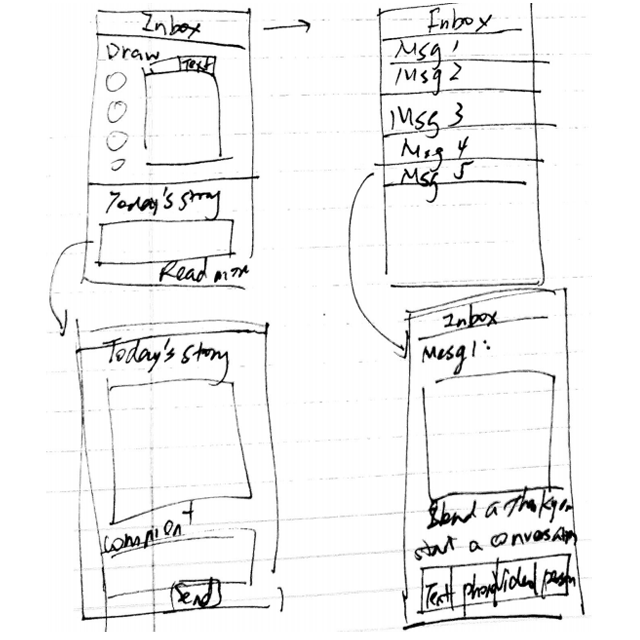 Inbox
Draw
Text
Today's story
Read more
Inbox
Msg 1
Msg 2
Msg 3
Msg 4
Msg 5
Today's story
comment
Send
Inbox
Mesg 1:
Send a thank you
start a conversation
Text phone video person